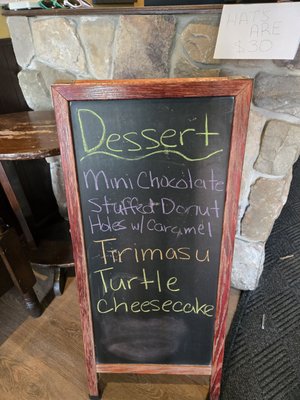 HATS ARE
$30
Dessert
Mini Chocolate
Stuffed Donut
Holes w/ Caramel
Tirimasu
Turtle
Cheesecake